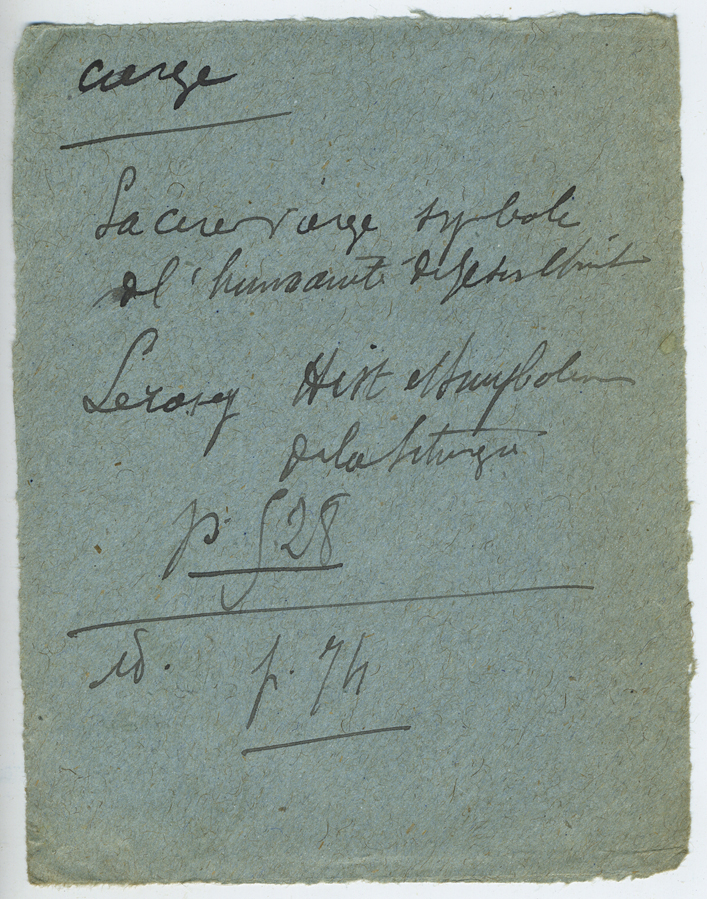 cierge
La cire vierge symbole
de l'humanité de Jesus Christ
Lerosey Hist et symbolisme
de la liturgie
p. 528
id. p. 74